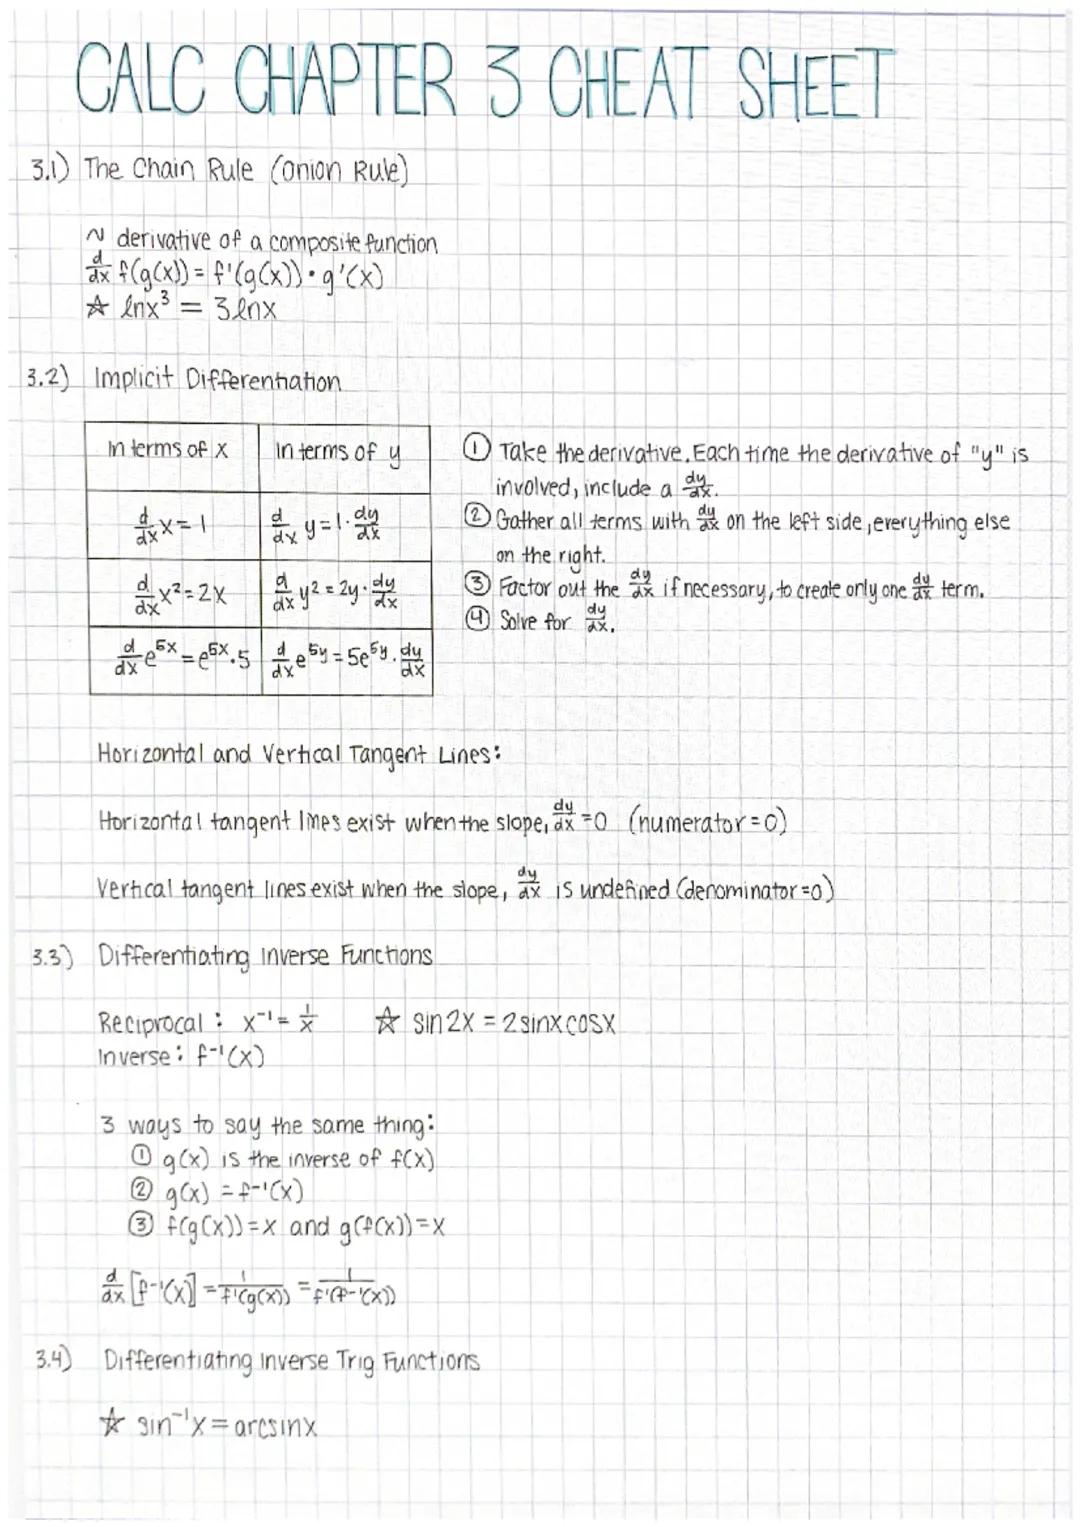 CALC CHAPTER 3 CHEAT SHEET
3.1) The Chain Rule (Onion Rule)
~ derivative of a composite function
d/dx f(g(x)) = f'(g(x)) • g'(x)
☆ lnx³ = 3lnx
3.2) Implicit Differentiation
In terms of x | In terms of y
d/dx x = 1 | d/dx y = 1 · dy/dx
d/dx x² = 2x | d/dx y² = 2y · dy/dx
d/dx e^5x = e^5x · 5 | d/dx e^5y = 5e^5y · dy/dx
① Take the derivative. Each time the derivative of "y" is
involved, include a dy/dx.
② Gather all terms with dy/dx on the left side, everything else
on the right.
③ Factor out the dy/dx if necessary, to create only one dy/dx term.
④ Solve for dy/dx.
Horizontal and Vertical Tangent Lines:
Horizontal tangent lines exist when the slope, dy/dx = 0 (numerator = 0)
Vertical tangent lines exist when the slope, dy/dx is undefined (denominator = 0)
3.3) Differentiating Inverse Functions
Reciprocal: x⁻¹ = 1/x ☆ sin2x = 2sinxcosx
Inverse: f⁻¹(x)
3 ways to say the same thing:
① g(x) is the inverse of f(x)
② g(x) = f⁻¹(x)
③ f(g(x)) = x and g(f(x)) = x
d/dx [f⁻¹(x)] = 1/f'(g(x)) = 1/f'(f⁻¹(x))
3.4) Differentiating Inverse Trig Functions
☆ sin⁻¹x = arcsinx